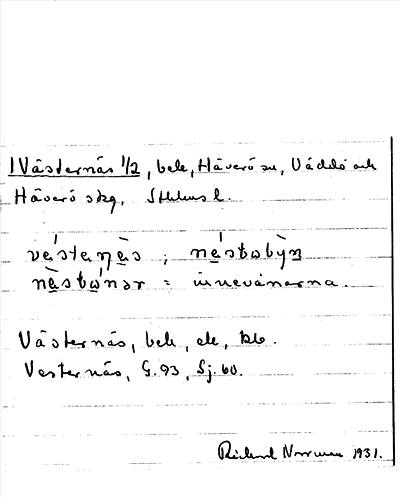 Västernäs 1/2, bebe, Häverö sn, Väddö och
Häverö skg, Sthlms l.
västeṇäs ; nästabyn
nästbonar = innevånarna.
Västernäs, beb, ek, kb.
Vesternäs, G. 93, Sj. 60.
Rickard 1931.